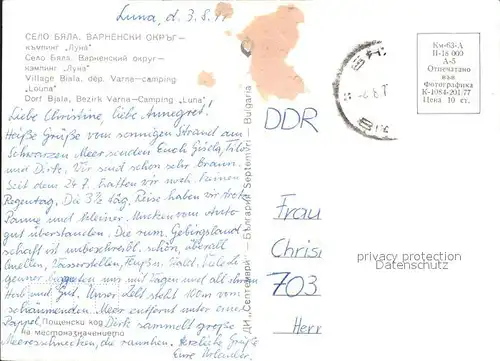 Luna, d. 3.8.77
СЕЛО БЯЛА, ВАРНЕНСКИ ОКРЪГ —
къмпинг „Луна"
Село Бяла. Варненский округ —
кэмпинг „Луна"
Village Biala, dép. Varna—camping
„Louna"
Dorf Bjala, Bezirk Varna—Camping „Luna"
Liebe Christine, liebe Annegret!
Heiße Grüße vom sonnigen Strand am
Schwarzen Meer senden Euch Gisela, Tilo
und Dirk. Wir sind schon sehr braun.
Seit dem 24.7. hatten wir noch keinen
Regentag. Die 3½ täg. Reise haben wir trotz
Panne und kleiner Mucken vom Auto
gut überstanden. Die rum. Gebirgsland-
schaft ist unbeschreibl. schön, überall
Quellen, Wasserstellen, Fluß u. Wald. Viele Zi-
geuner begegneten uns mit Wagen und all ihrem
Hab und Gut. Unser Zelt steht 100m vom
schäumenden Meer entfernt unter einer
Pappel. Dirk sammelt große
Meeresschnecken, die rauschen. Herzliche Grüße
Eure
Пощенски код
на местоназначението
ДИ „Септември" — България Septemvri — Bulgaria
DDR
Frau
Chris
703
Herr
Км-63-А
П-18 000
А-5
Отпечатано
във
Фотографика
К-1084-201-77
Цена 10 ст.
privacy protection
Datenschutz